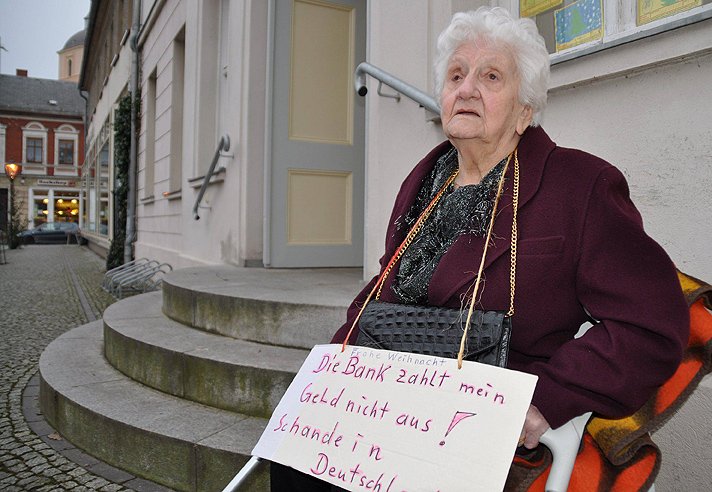 Frohe Weihnacht
Die Bank zahlt mein
Geld nicht aus!
Schande in
Deutschl